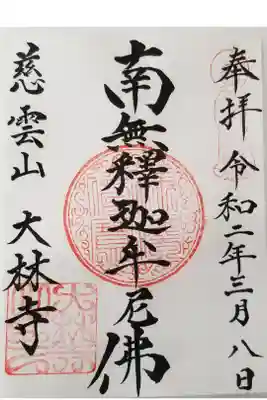 奉拝 令和二年三月八日
南無釋迦牟尼佛
慈雲山 大林寺